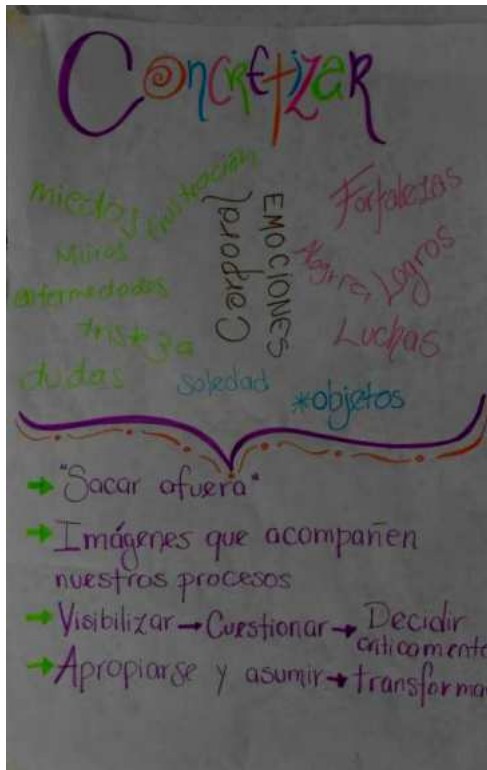 Concretizar
miedos
frustración
Muros
enfermedades
tristeza
dudas
soledad
(Corporal)
EMOCIONES
Fortalezas
Alegría,
Logros
Luchas
*objetos
→ "Sacar afuera"
→ Imágenes que acompañen
nuestros procesos
→ Visibilizar → Cuestionar → Decidir
criticamente
→ Apropiarse y asumir → transforma